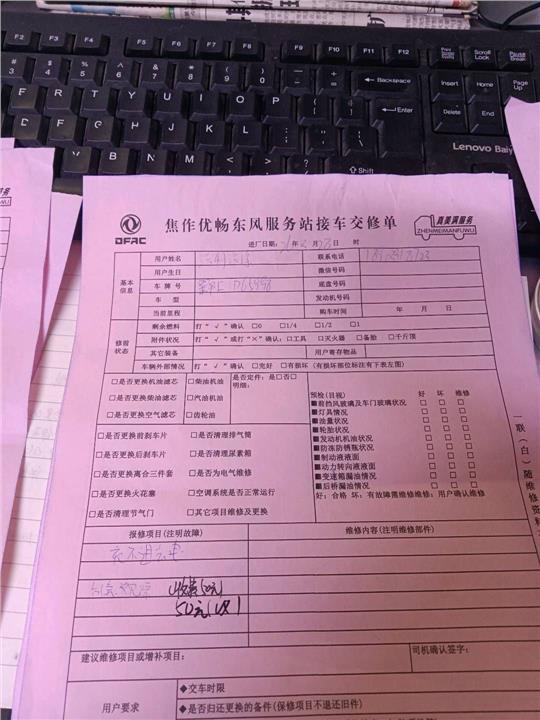 F2 F3 F4 F5 F6 F7 F8 F9 F10 F11 F12 Scroll Lock Pause Break
Backspace Insert Home Page Up
E R T Y U I O P Enter Delete End
D F G H J K L
V B N M Shift
Lenovo
焦作优畅东风服务站接车交修单
DFAC
真美满服务
ZHENMEIMANFUWU
进厂日期: 年 月 日 时
基本信息
用户姓名 联系电话
用户生日 微信号码
车牌号 底盘号码
车型 发动机号码
当前里程 购车时间 年 月 日
修前状态
剩余燃料 打“√”确认 □0 □1/4 □1/2 □1
附件状况 打“√”或打“×”确认:□工具 □灭火器 □备胎 □千斤顶
其它装备 用户寄存物品
车辆外部情况 打“√”确认 □完好 □有损(有损部位标注有下表左图)
□是否更换机油滤芯 □柴油机油 是否定件:是□否□
明细:
□是否更换柴油滤芯 □汽油机油
□是否更换空气滤芯 □齿轮油
□是否更换前刹车片 □是否清理排气筒
□是否更换后刹车片 □是否清理尿素箱
□是否更换离合三件套 □是否为电气维修
□是否更换火花塞 □空调系统是否正常运行
□是否清理节气门 □其它项目维修及更换
预检(目视) 好 坏 维修
■前挡风玻璃及车门玻璃状况
■灯具情况
■油量状况
■轮胎状况
■发动机机油状况
■防冻防锈瓶状况
■制动液液面
■动力转向液液面
■变速箱漏油情况
■后桥漏油情况
好:合格 坏:有故障需维修维修:用户确认维修
一联(白)随维修资料
报修项目(注明故障) 维修内容(注明维修部件)
50元
建议维修项目或增补项目:
司机确认签字:
用户要求
◆交车时限
◆是否归还更换的备件(保修项目不退还旧件)